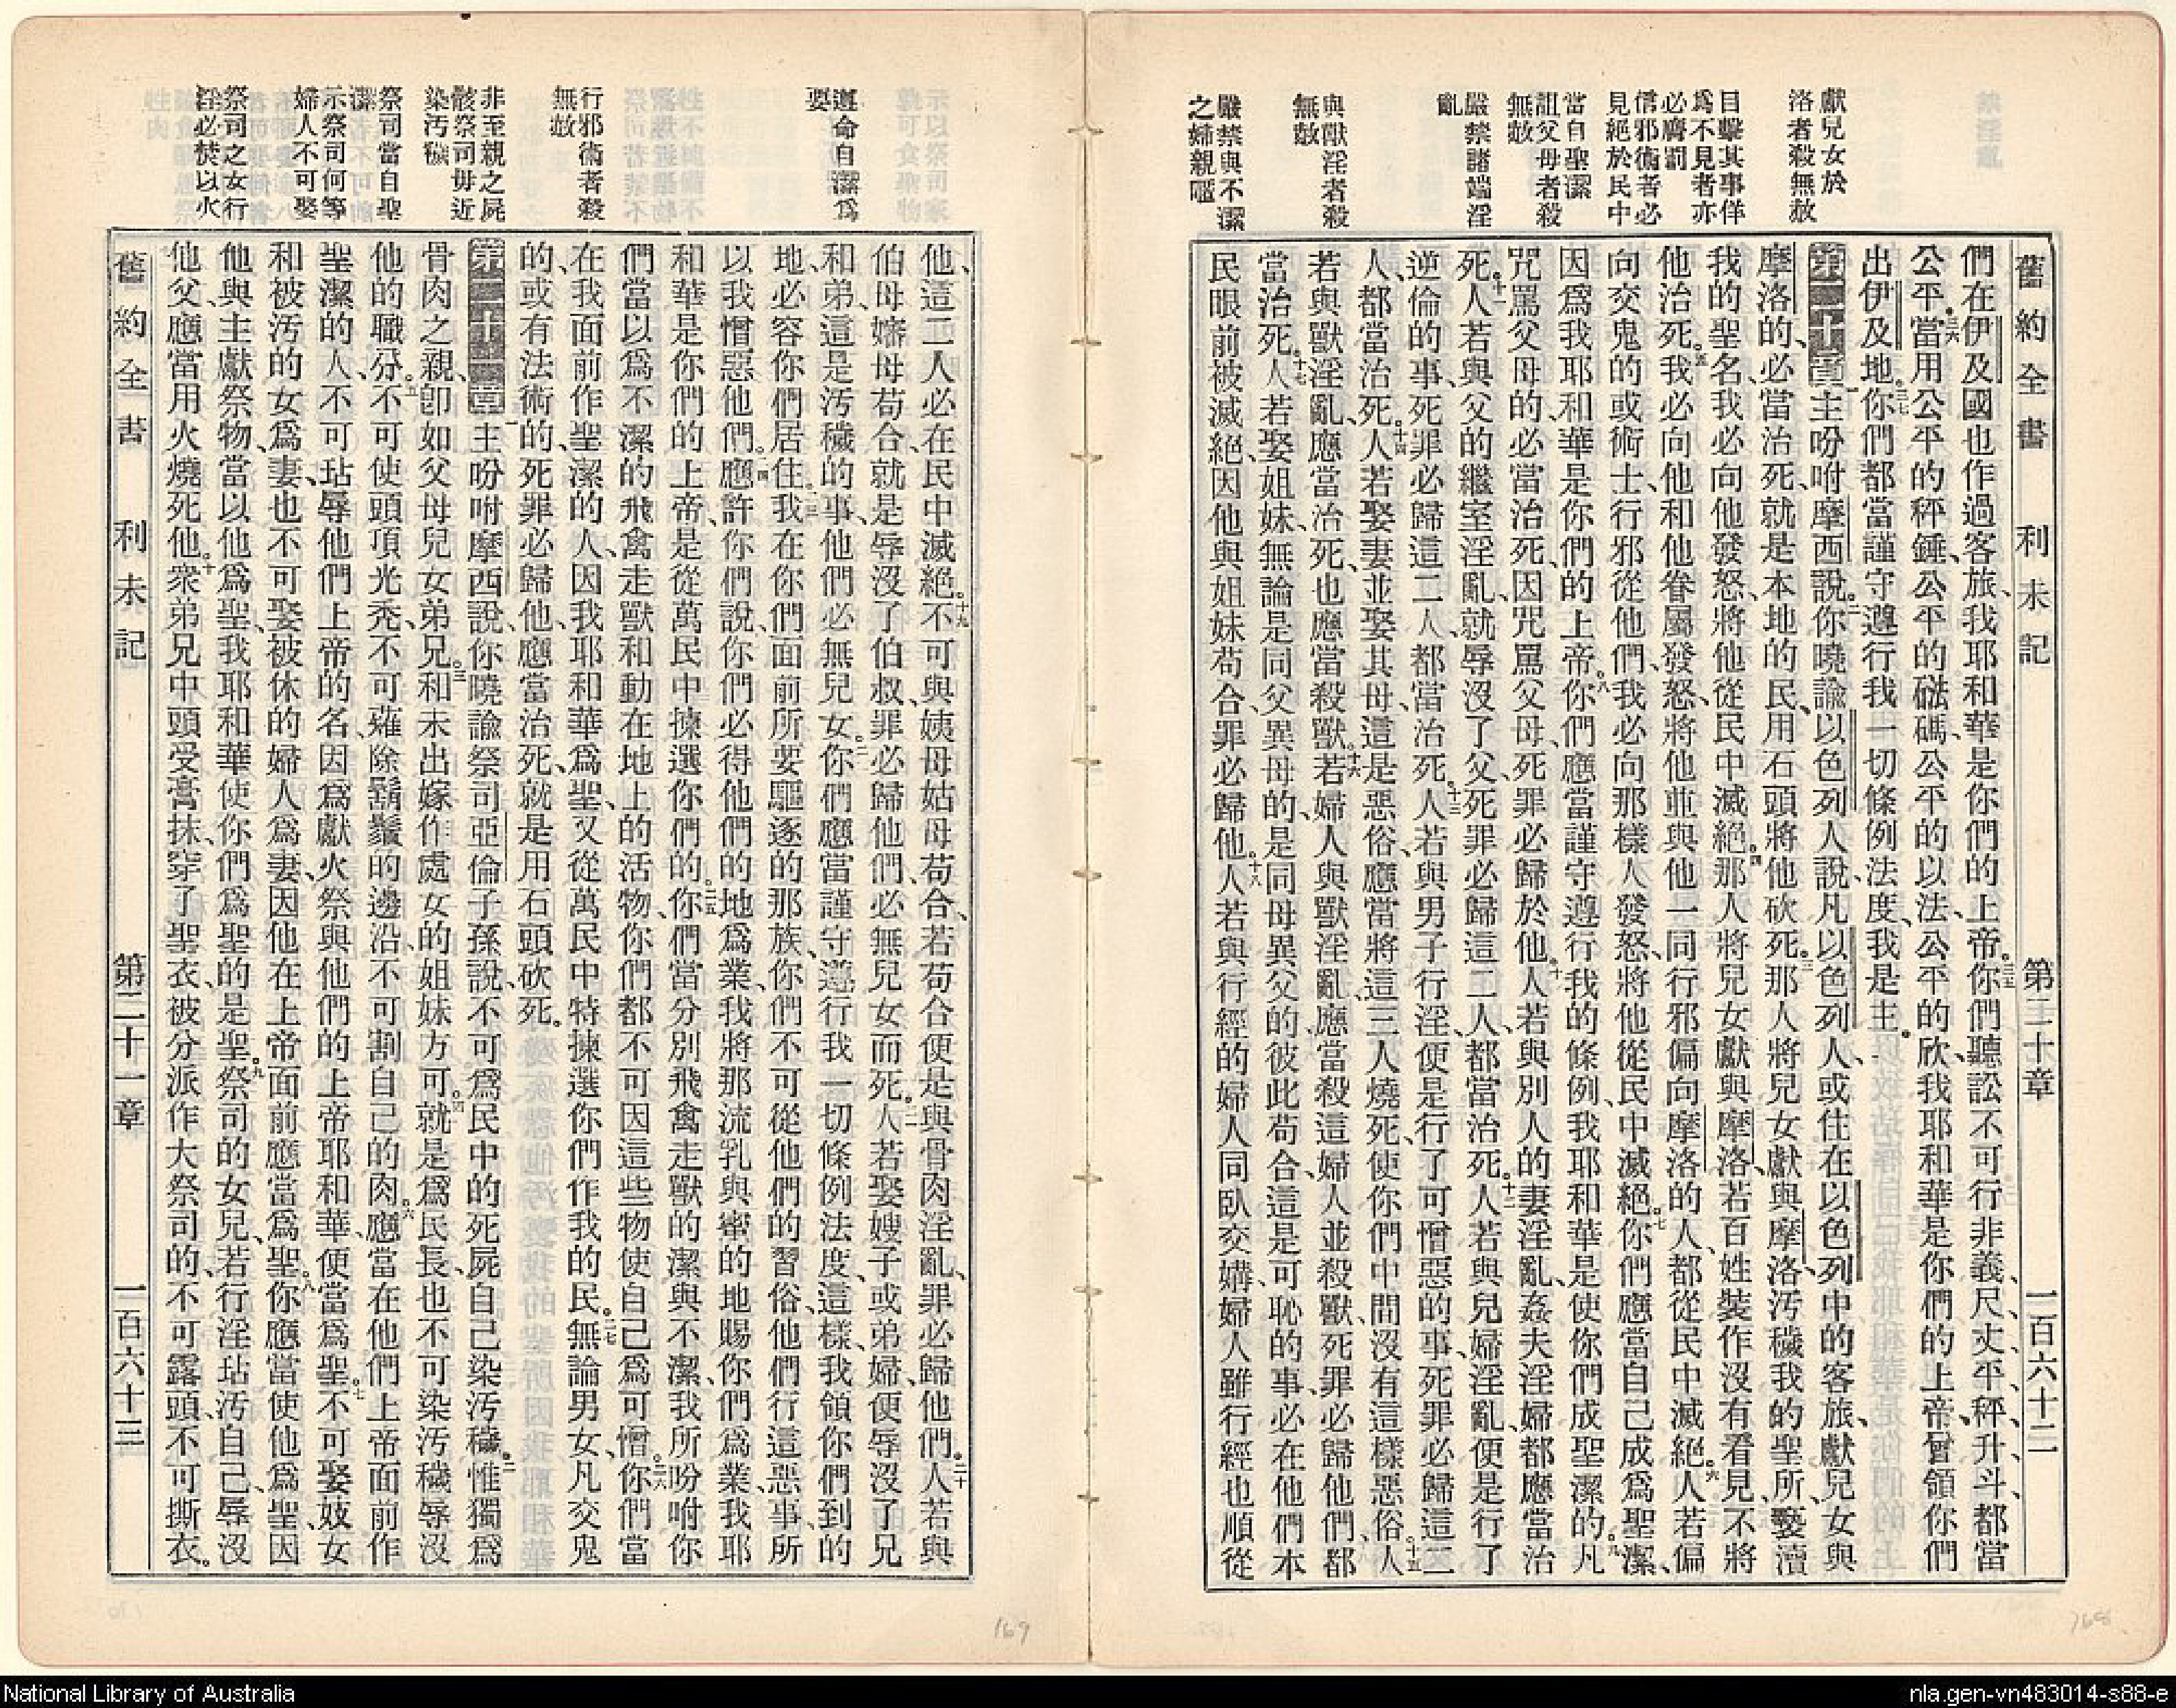 舊約全書 利未記 第二十章 一百六十二
獻兒女於
洛者殺無赦
目擊其事佯
爲不見者亦
必膺罰
信邪術者必
見絕於民中
當自聖潔
詛父母者殺
無赦
嚴禁諸端淫
亂
與獸淫者殺
無赦
嚴禁與不潔
之婦親嫗
們在伊及國也作過客旅、我耶和華是你們的上帝。三五你們聽訟不可行非義、尺丈平秤升斗、都當
公平。三六當用公平的秤錘、公平的磁碼、公平的以法、公平的欣、我耶和華是你們的上帝、曾領你們
出伊及地。三七你們都當謹守遵行我一切條例法度、我是主。
第二十章一主吩咐摩西說、二你曉諭以色列人說、凡以色列人、或住在以色列中的客旅、獻兒女與
摩洛的、必當治死、就是本地的民用石頭將他砍死。三那人將兒女獻與摩洛、污穢我的聖所、褻瀆
我的聖名、我必向他發怒、將他從民中滅絕。四那人將兒女獻與摩洛、若百姓裝作沒有看見、不將
他治死。五我必向他和他眷屬發怒、將他並與他一同行邪偏向摩洛的人、都從民中滅絕。六人若偏
向交鬼的或術士、行邪從他們、我必向那樣人發怒、將他從民中滅絕。七你們應當自己成爲聖潔、
因爲我耶和華是你們的上帝。八你們應當謹守遵行我的條例、我耶和華是使你們成聖潔的。九凡
咒罵父母的、必當治死、因咒罵父母、死罪必歸於他。十人若與別人的妻淫亂、姦夫淫婦都應當治
死。十一人若與父的繼室淫亂、就辱沒了父、死罪必歸這二人、都當治死。十二人若與兒婦淫亂、便是行了
逆倫的事、死罪必歸這二人、都當治死。十三人若與男子行淫、便是行了可憎惡的事、死罪必歸這二
人、都當治死。十四人若娶妻並娶其母、這是惡俗、應當將這三人燒死、使你們中間沒有這樣惡俗。十五人
若與獸淫亂、應當治死、也應當殺獸。十六若婦人與獸淫亂、應當殺這婦人並殺獸、死罪必歸他們、都
當治死。十七人若娶姐妹、無論是同父異母的、是同母異父的、彼此苟合、這是可恥的事、必在他們本
民眼前被滅絕、因他與姐妹苟合、罪必歸他。十八人若與行經的婦人同臥交媾、婦人雖行經也順從
遵命自潔爲
要
行邪術者殺
無赦
非至親之屍
骸祭司毋近
染汚穢
祭司當自聖
潔
示祭司何等
婦人不可娶
祭司之女行
淫必焚以火
他、這二人必在民中滅絕。十九不可與姨母姑母苟合、若苟合便是與骨肉淫亂、罪必歸他們。二十人若與
伯母嬸母苟合、就是辱沒了伯叔、罪必歸他們、必無兒女而死。二一人若娶嫂子或弟婦、便辱沒了兄
和弟、這是汚穢的事、他們必無兒女。二二你們應當謹守遵行我一切條例法度、這樣、我領你們到的
地、必容你們居住。二三我在你們面前所要驅逐的那族、你們不可從他們的習俗、他們行這惡事、所
以我憎惡他們。二四應許你們說、你們必得他們的地爲業、我將那流乳與蜜的地賜你們爲業、我耶
和華是你們的上帝、是從萬民中揀選你們的。二五你們當分別飛禽走獸的潔與不潔、我所吩咐你
們當以爲不潔的飛禽走獸和動在地上的活物、你們都不可因這些物使自己爲可憎。二六你們當
在我面前作聖潔的人、因我耶和華爲聖、又從萬民中特揀選你們作我的民。二七無論男女、凡交鬼
的、或有法術的、死罪必歸他、應當治死、就是用石頭砍死。
第二十一章一主吩咐摩西說、你曉諭祭司亞倫子孫說、不可爲民中的死屍自己染汚穢。二惟獨爲
骨肉之親、卽如父母兒女弟兄。三和未出嫁作處女的姐妹方可。四就是爲民長、也不可染汚穢辱沒
他的職分。五不可使頭頂光禿、不可薙除鬍鬚的邊沿、不可割自己的肉。六應當在他們上帝面前作
聖潔的人、不可玷辱他們上帝的名、因爲獻火祭與他們的上帝耶和華、便當爲聖。七不可娶妓女
和被汚的女爲妻、也不可娶被休的婦人爲妻、因他在上帝面前應當爲聖。八你應當使他爲聖、因
他與主獻祭物、當以他爲聖、我耶和華使你們爲聖的是聖。九祭司的女兒、若行淫玷汚自己、辱沒
他父、應當用火燒死他。十衆弟兄中頭受膏抹、穿了聖衣、被分派作大祭司的、不可露頭、不可撕衣。
舊約全書 利未記 第二十一章 一百六十三
169
168
National Library of Australia
nla.gen-vn483014-s88-e